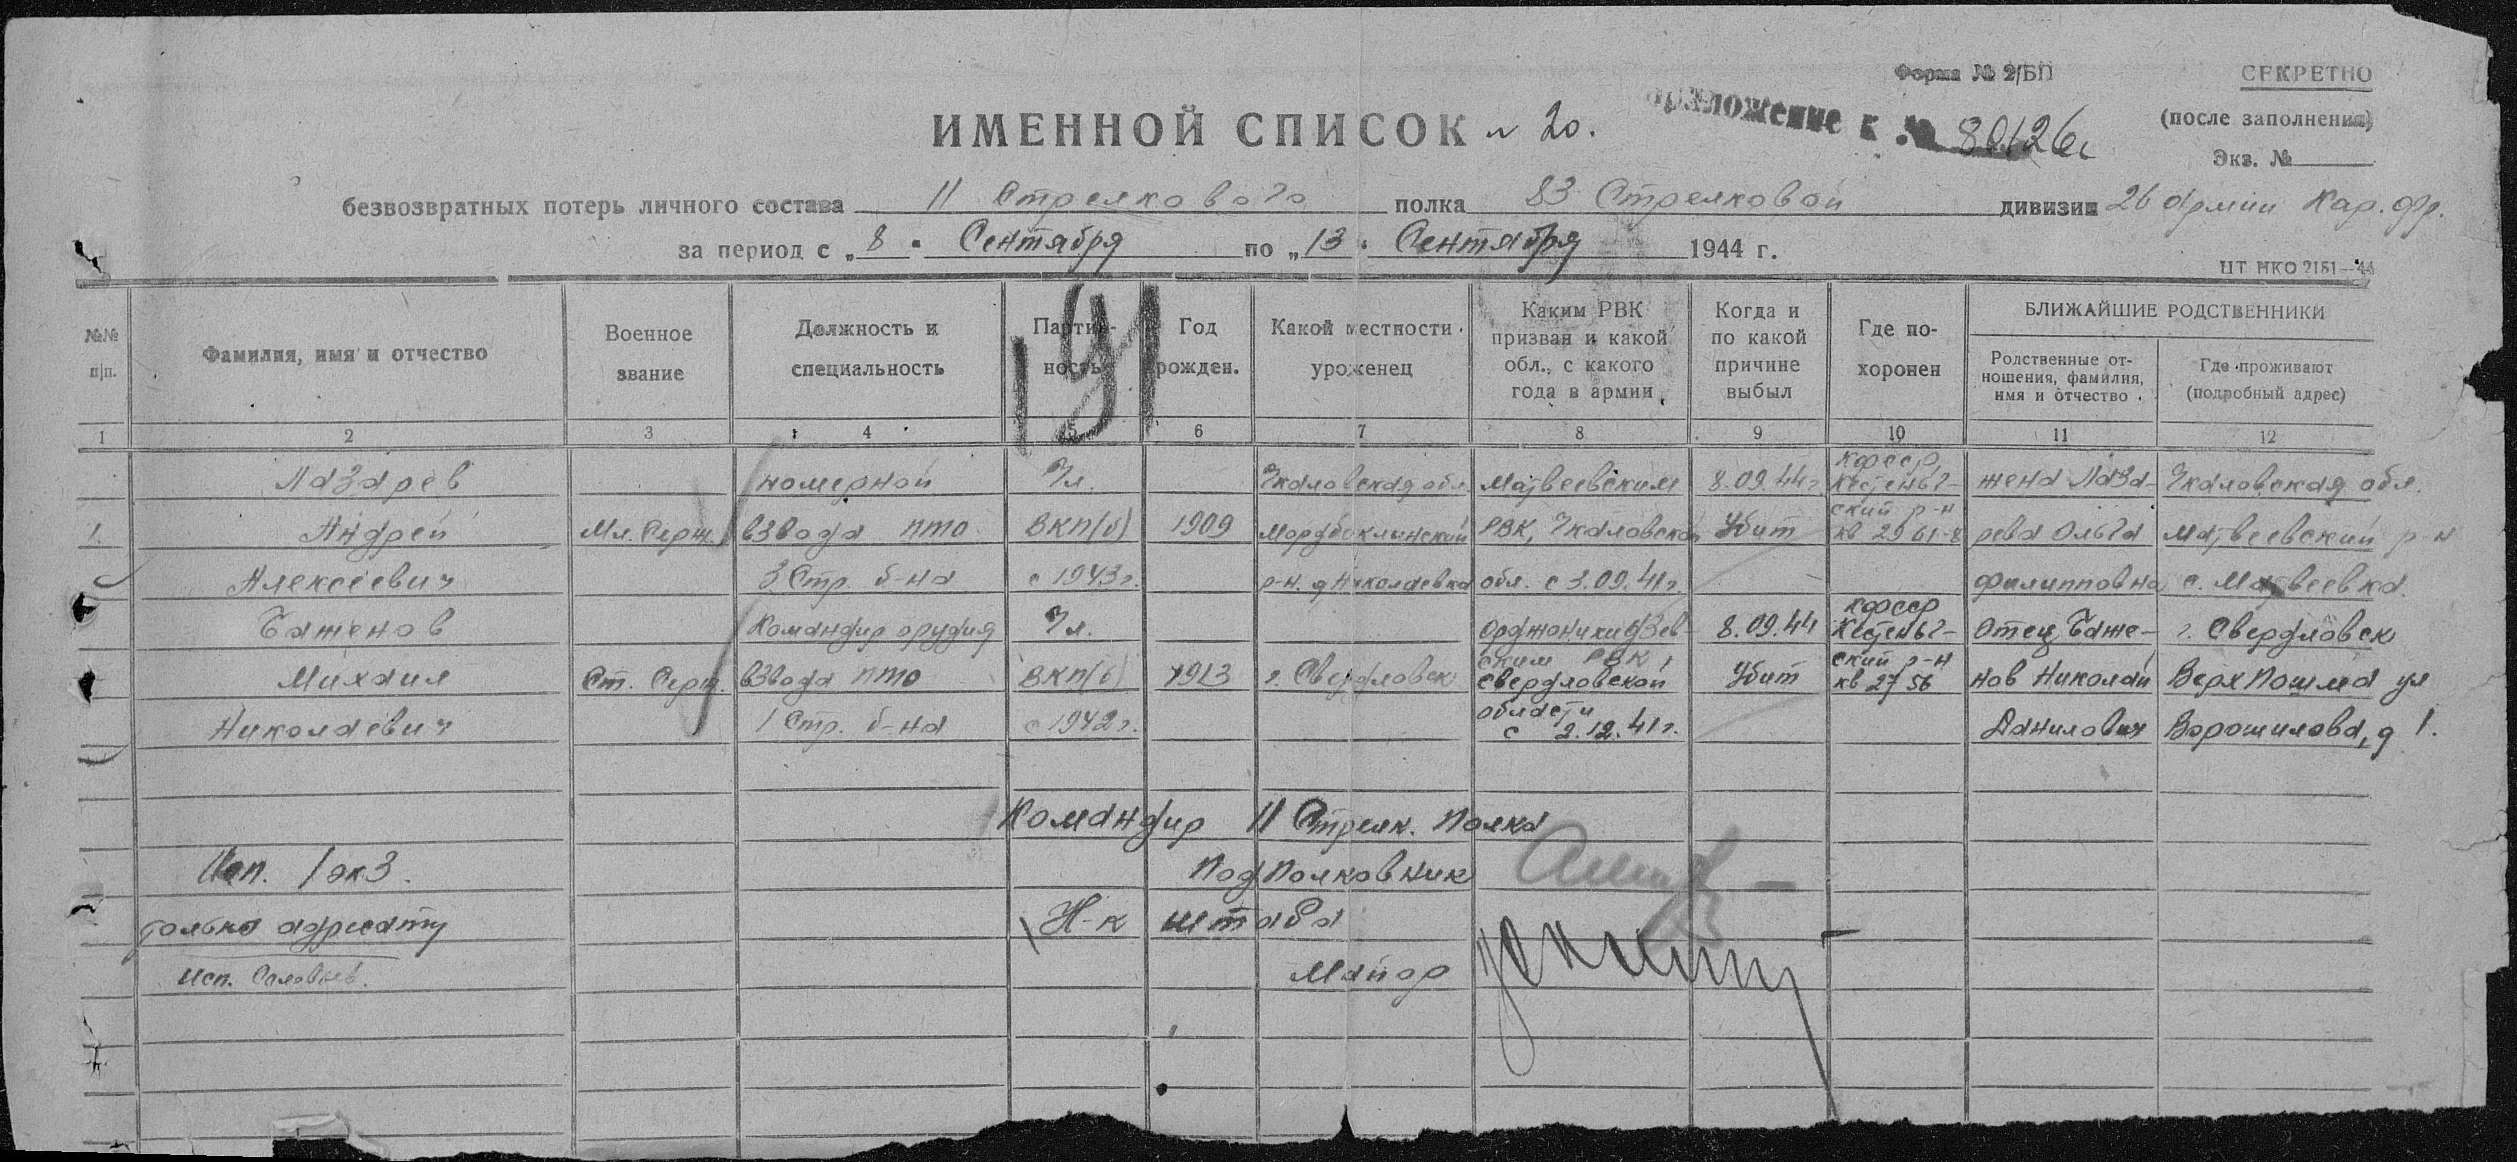 Форма № 2/БП
СЕКРЕТНО
ИМЕННОЙ СПИСОК № 20.
приложение к № 80126с
(после заполнения)
Экз. №
безвозвратных потерь личного состава 11 Стрелкового полка 83 Стрелковой дивизии 26 Армии Кар. фр.
за период с „8" Сентября по „13" Сентября 1944 г.
ЦТ НКО 2151—44
№№ п|п.
Фамилия, имя и отчество
Военное звание
Должность и специальность
Партийность
Год рожден.
Какой местности уроженец
Каким РВК призван и какой обл., с какого года в армии
Когда и по какой причине выбыл
Где похоронен
БЛИЖАЙШИЕ РОДСТВЕННИКИ
Родственные отношения, фамилия, имя и отчество
Где проживают (подробный адрес)
1 2 3 4 5 6 7 8 9 10 11 12
КФССР
Лазарев номерной Чл. Чкаловская обл. Матвеевским 8.09.44г. Кестеньг- жена Лаза- Чкаловская обл.
ский р-н
1. Андрей Мл. Серж. взвода ПТО ВКП(б) 1909 Мордбоклинский РВК, Чкаловской Убит кв 2961-8 рева Ольга Матвеевский р-н
Алексеевич 3 Стр. б-на с 1943г. р-н. д Николаевка обл. с 3.09.41г. Филипповна с. Матвеевка.
КФССР
Баженов Командир орудия Чл. Орджоникидзев- 8.09.44 Кестеньг- Отец Баже- г. Свердловск
ским РВК, ский р-н
Михаил Ст. Серж. взвода ПТО ВКП(б) 1923 г. Свердловск Свердловской Убит кв 2756 нов Николай Верх Пошма ул
области
Николаевич 1 Стр. б-на с 1942г. с 2.12.41г. Данилович Ворошилова, д 1.
Командир 11 Стрелк. Полка
Исп. 1 экз. Подполковник
только адресату Н-к штаба
Исп. Соловьев. Майор